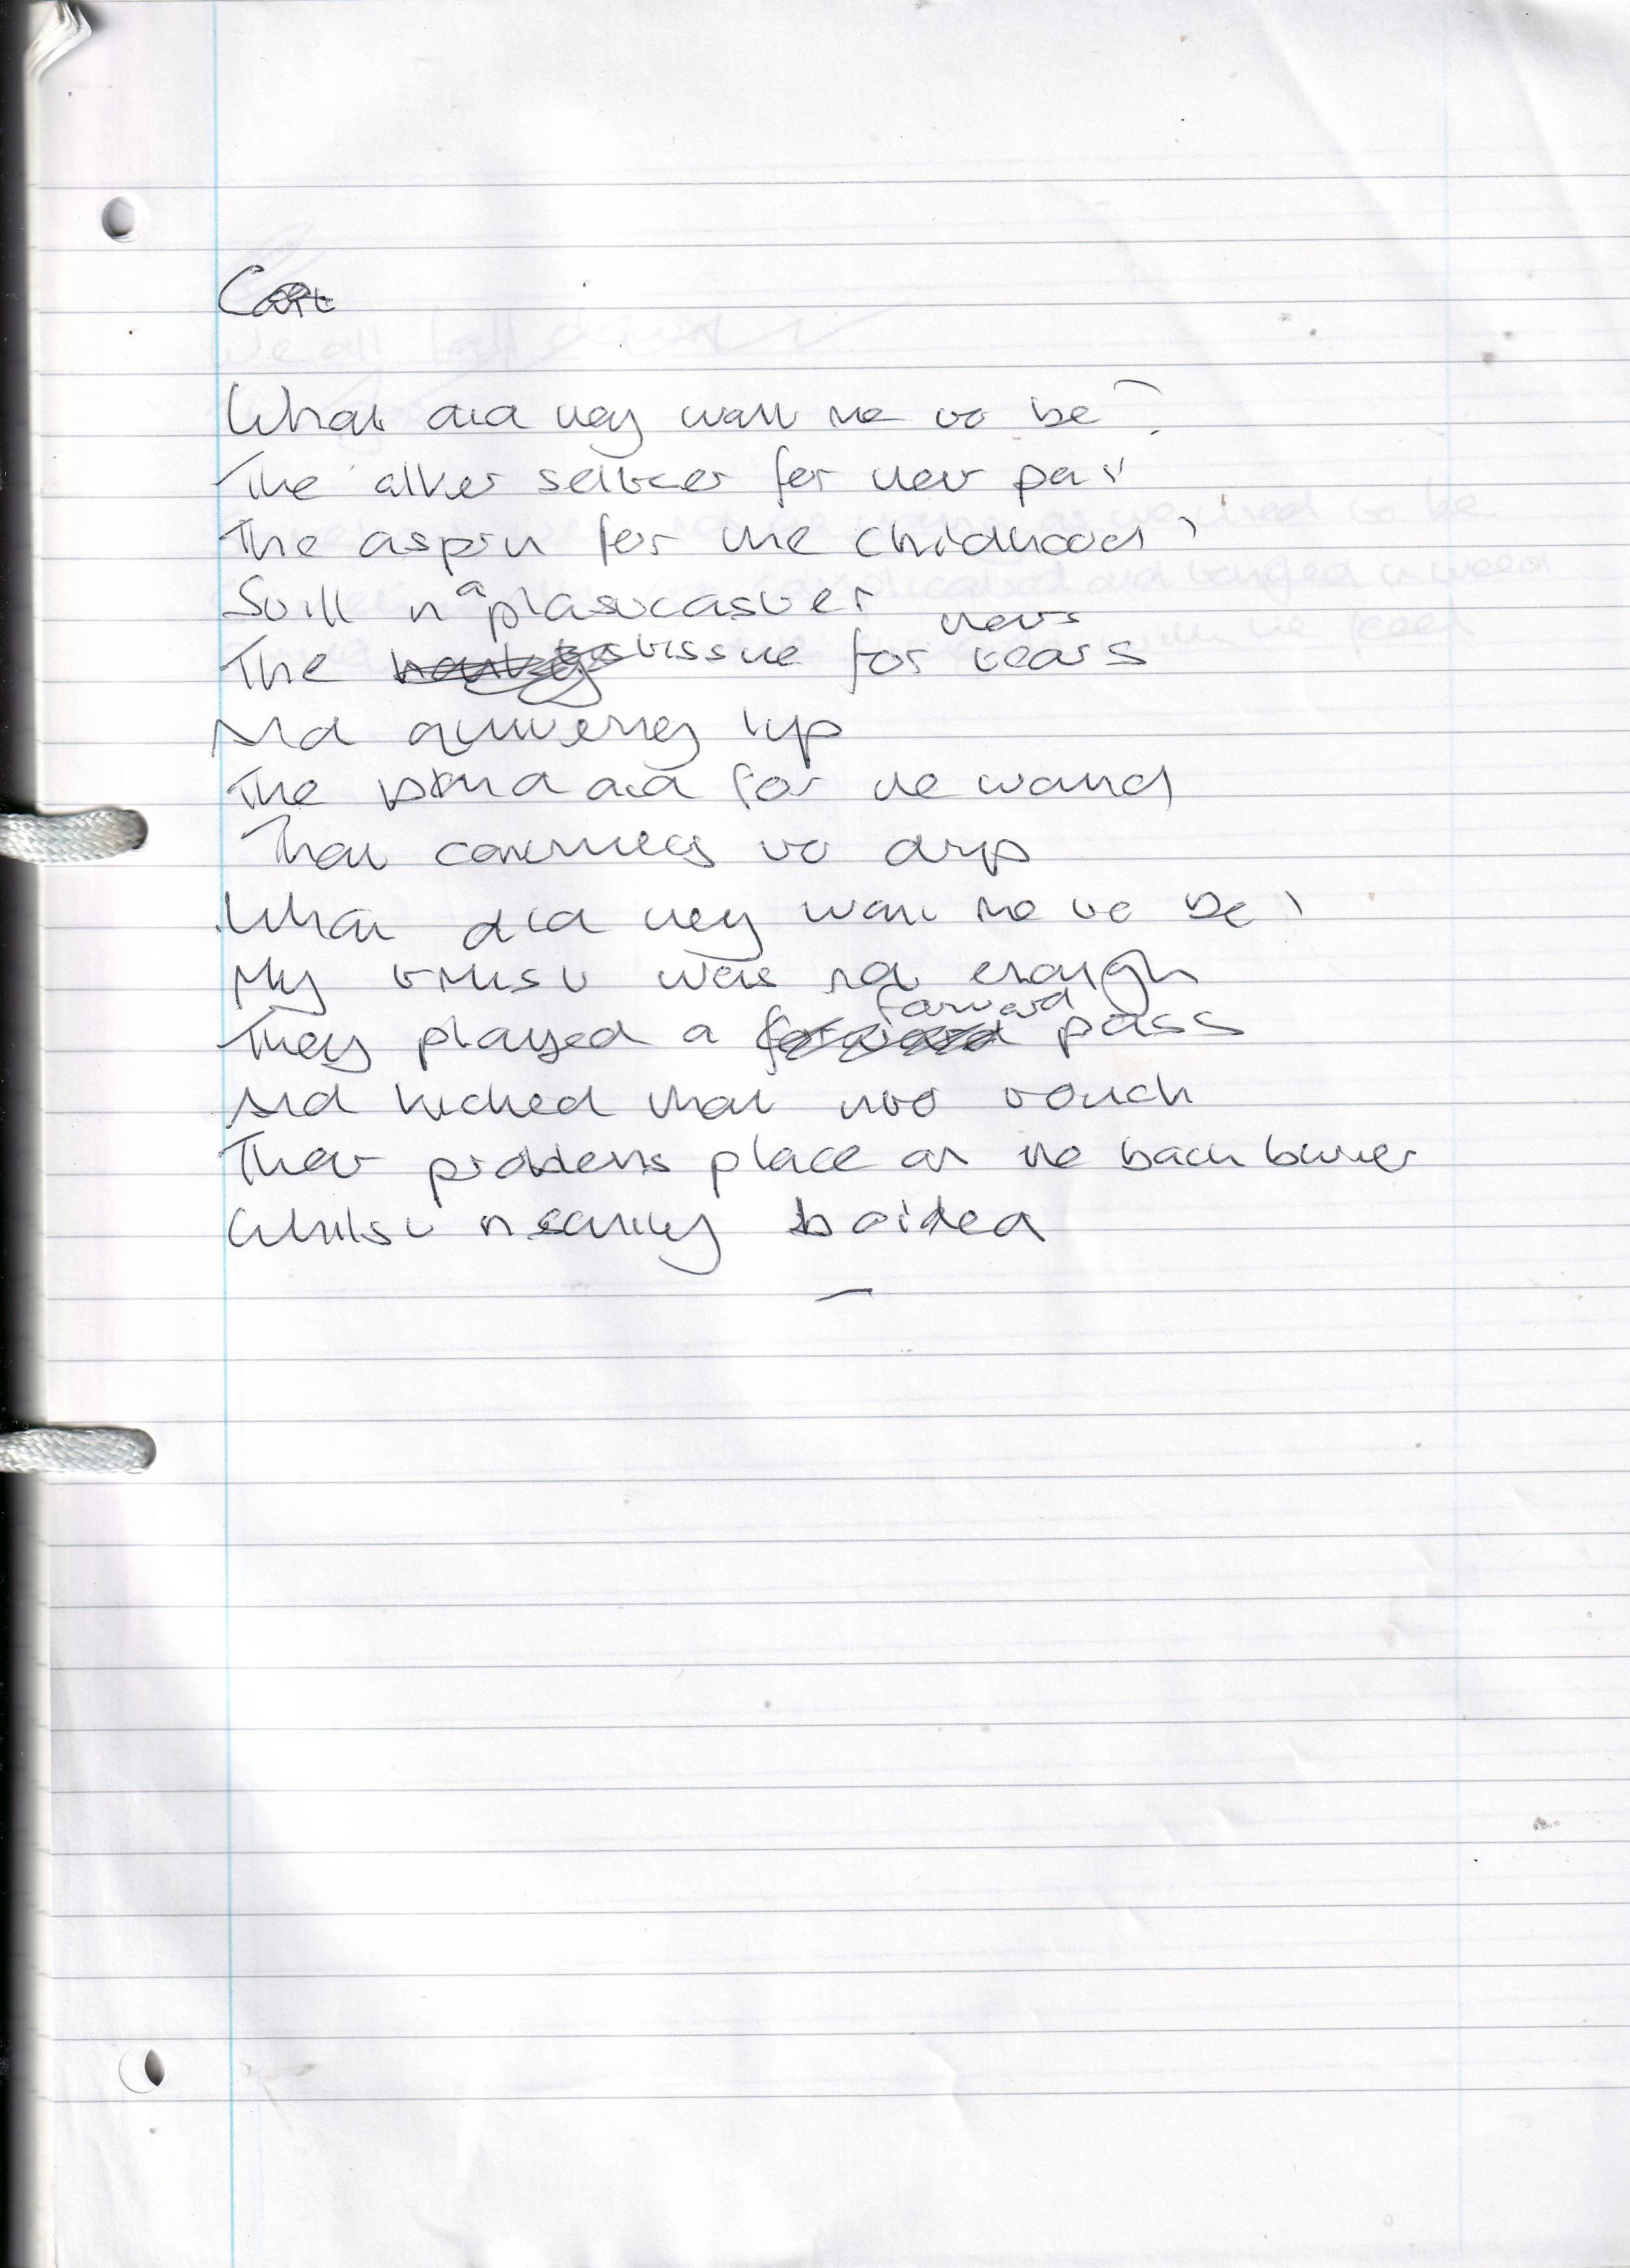 What did they want me to be?
The alker seltzer for their pain
The asprin for the childhood
Still in a plastercaster
The tissue for theirs tears
And quivering lip
The band aid for the wound
That continues to drip
What did they want me to be?
My trust was not enough
They played a forward pass
And kicked that into touch
Their problems place on the back burner
Whilst insanity boiled